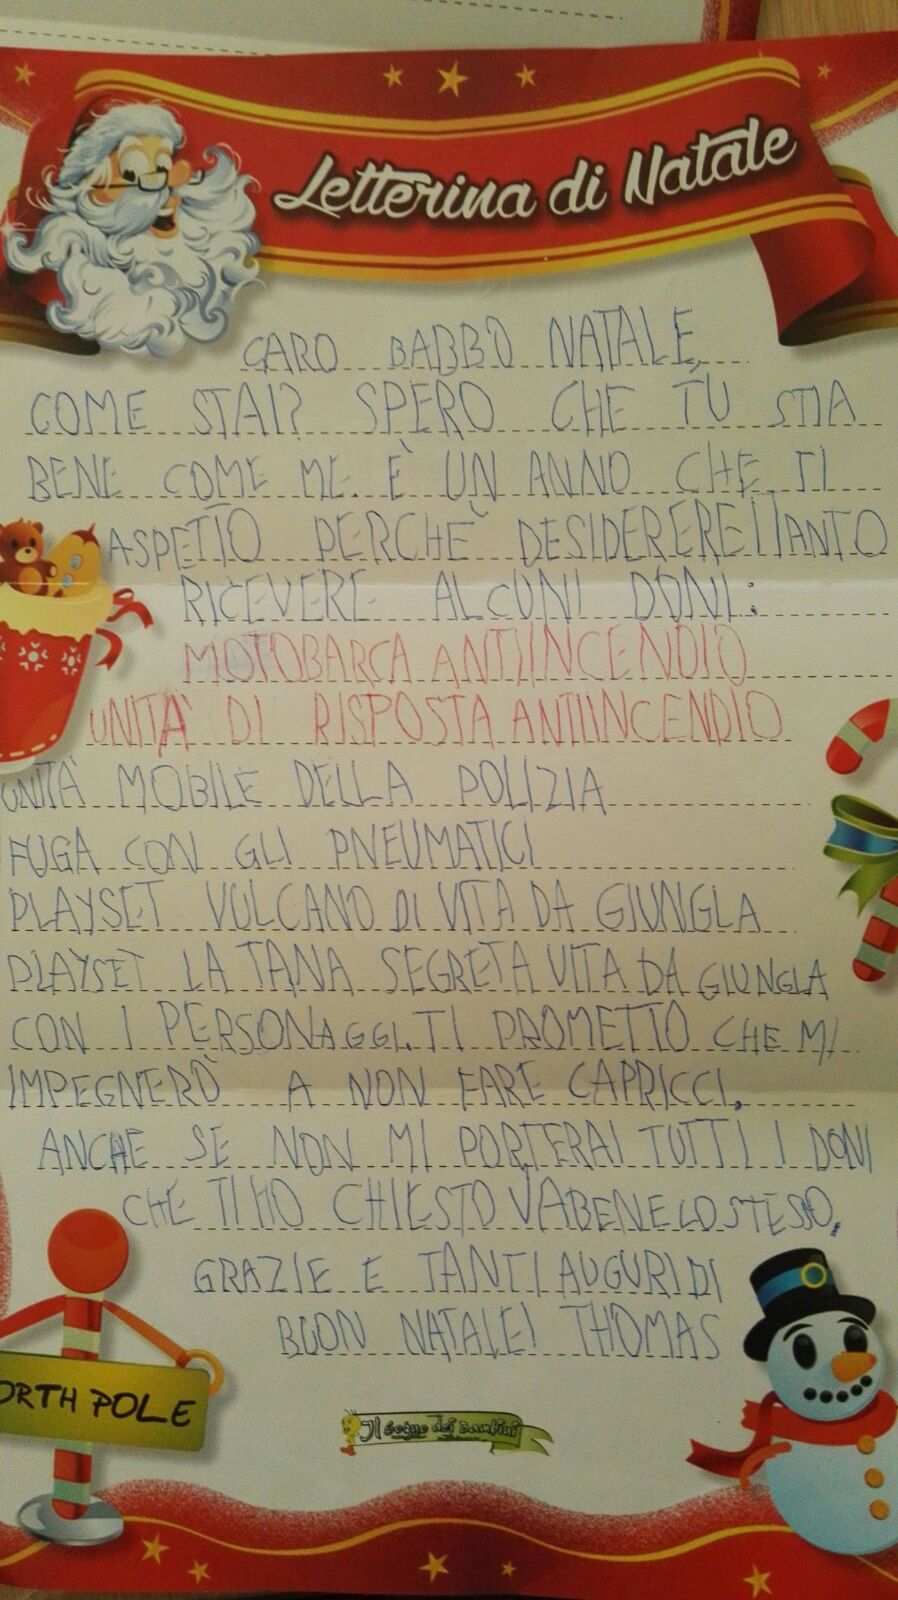 Letterina di Natale
CARO BABBO NATALE,
COME STAI? SPERO CHE TU STIA
BENE COME ME. È UN ANNO CHE TI
ASPETTO PERCHÈ DESIDEREREI TANTO
RICEVERE ALCUNI DONI:
MOTOBARCA ANTIINCENDIO
UNITÀ DI RISPOSTA ANTIINCENDIO
UNITÀ MOBILE DELLA POLIZIA
FUGA CON GLI PNEUMATICI
PLAYSET VULCANO DI VITA DA GIUNGLA
PLAYSET LA TANA SEGRETA VITA DA GIUNGLA
CON I PERSONAGGI. TI PROMETTO CHE MI
IMPEGNERÒ A NON FARE CAPRICCI.
ANCHE SE NON MI PORTERAI TUTTI I DONI
CHE TI HO CHIESTO VA BENE LO STESO.
GRAZIE E TANTI AUGURI DI
BUON NATALE! THOMAS
ORTH POLE
Il Sogno dei Bambini